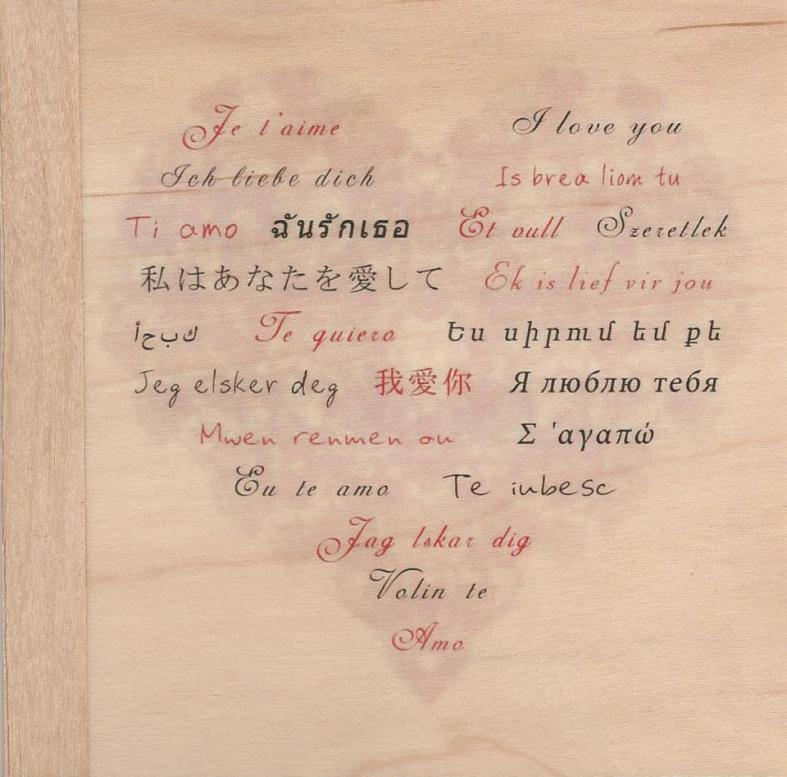 Je t'aime I love you
Ich liebe dich Is brea liom tu
Ti amo ฉันรักเธอ Et oull Szeretlek
私はあなたを愛して Ek is lief vir jou
كبحأ Te quiero Ես սիրում եմ քե
Jeg elsker deg 我愛你 Я люблю тебя
Mwen renmen ou Σ 'αγαπώ
Eu te amo Te iubesc
Jag lskar dig
Volin te
Amo